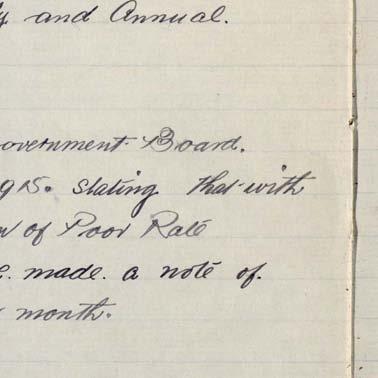 and Annual.
overnment Board.
915. stating that with
of Poor Rate
made a note of.
month.